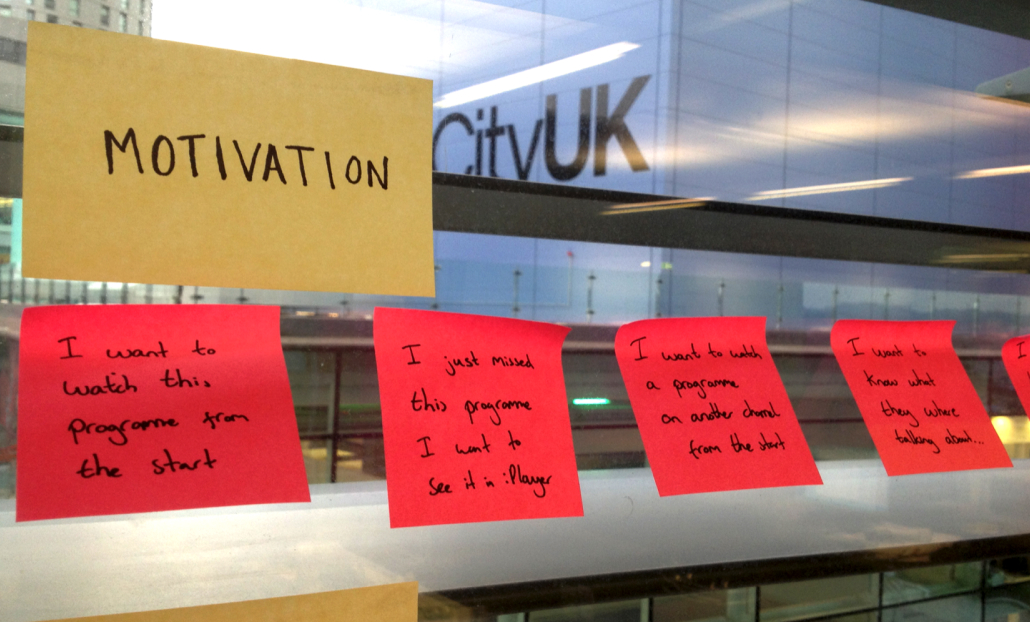 CityUK
MOTIVATION
I want to
watch this
programme from
the start
I just missed
this programme
I want to
see it in iPlayer
I want to watch
a programme
on another channel
from the start
I want to
know what
they where
talking about...
I